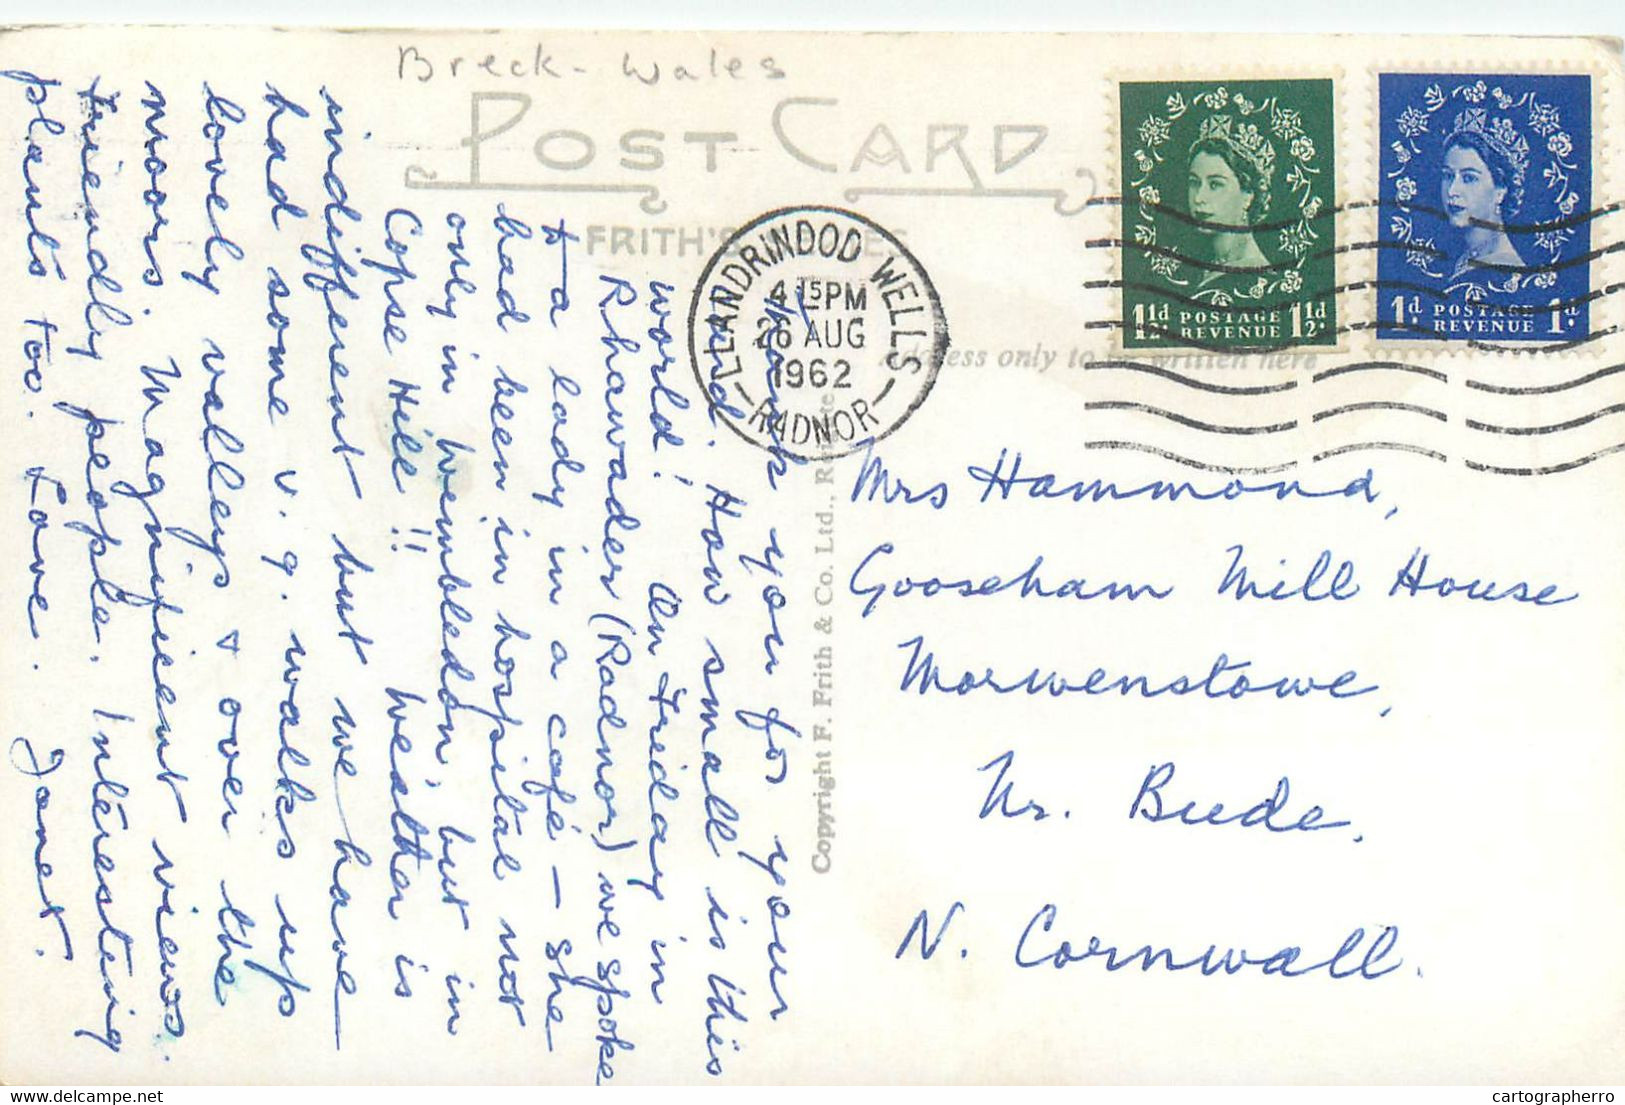 Breck - Wales
POST CARD
FRITH'S
LLANDRINDOD WELLS
4 15PM
26 AUG
1962
RADNOR
1½d POSTAGE REVENUE 1½d.
1d. POSTAGE REVENUE 1d.
Address only to be written here
Copyright F. Frith & Co. Ltd.,
Thank you for your
card. How small is this
world! On Friday in
Rhawader (Radnor) we spoke
to a lady in a café - she
had been in hospital not
only in Wembledon, but in
Copse Hill!! Weather is
indifferent but we have
had some v.g. walks up
lovely valleys & over the
moors. Magnificent views.
Friendly people. Interesting
plants too. Love. Janet.
Mrs Hammond,
Gooseham Mill House
Morwenstowe,
Nr. Bude.
N. Cornwall.
cartographerro